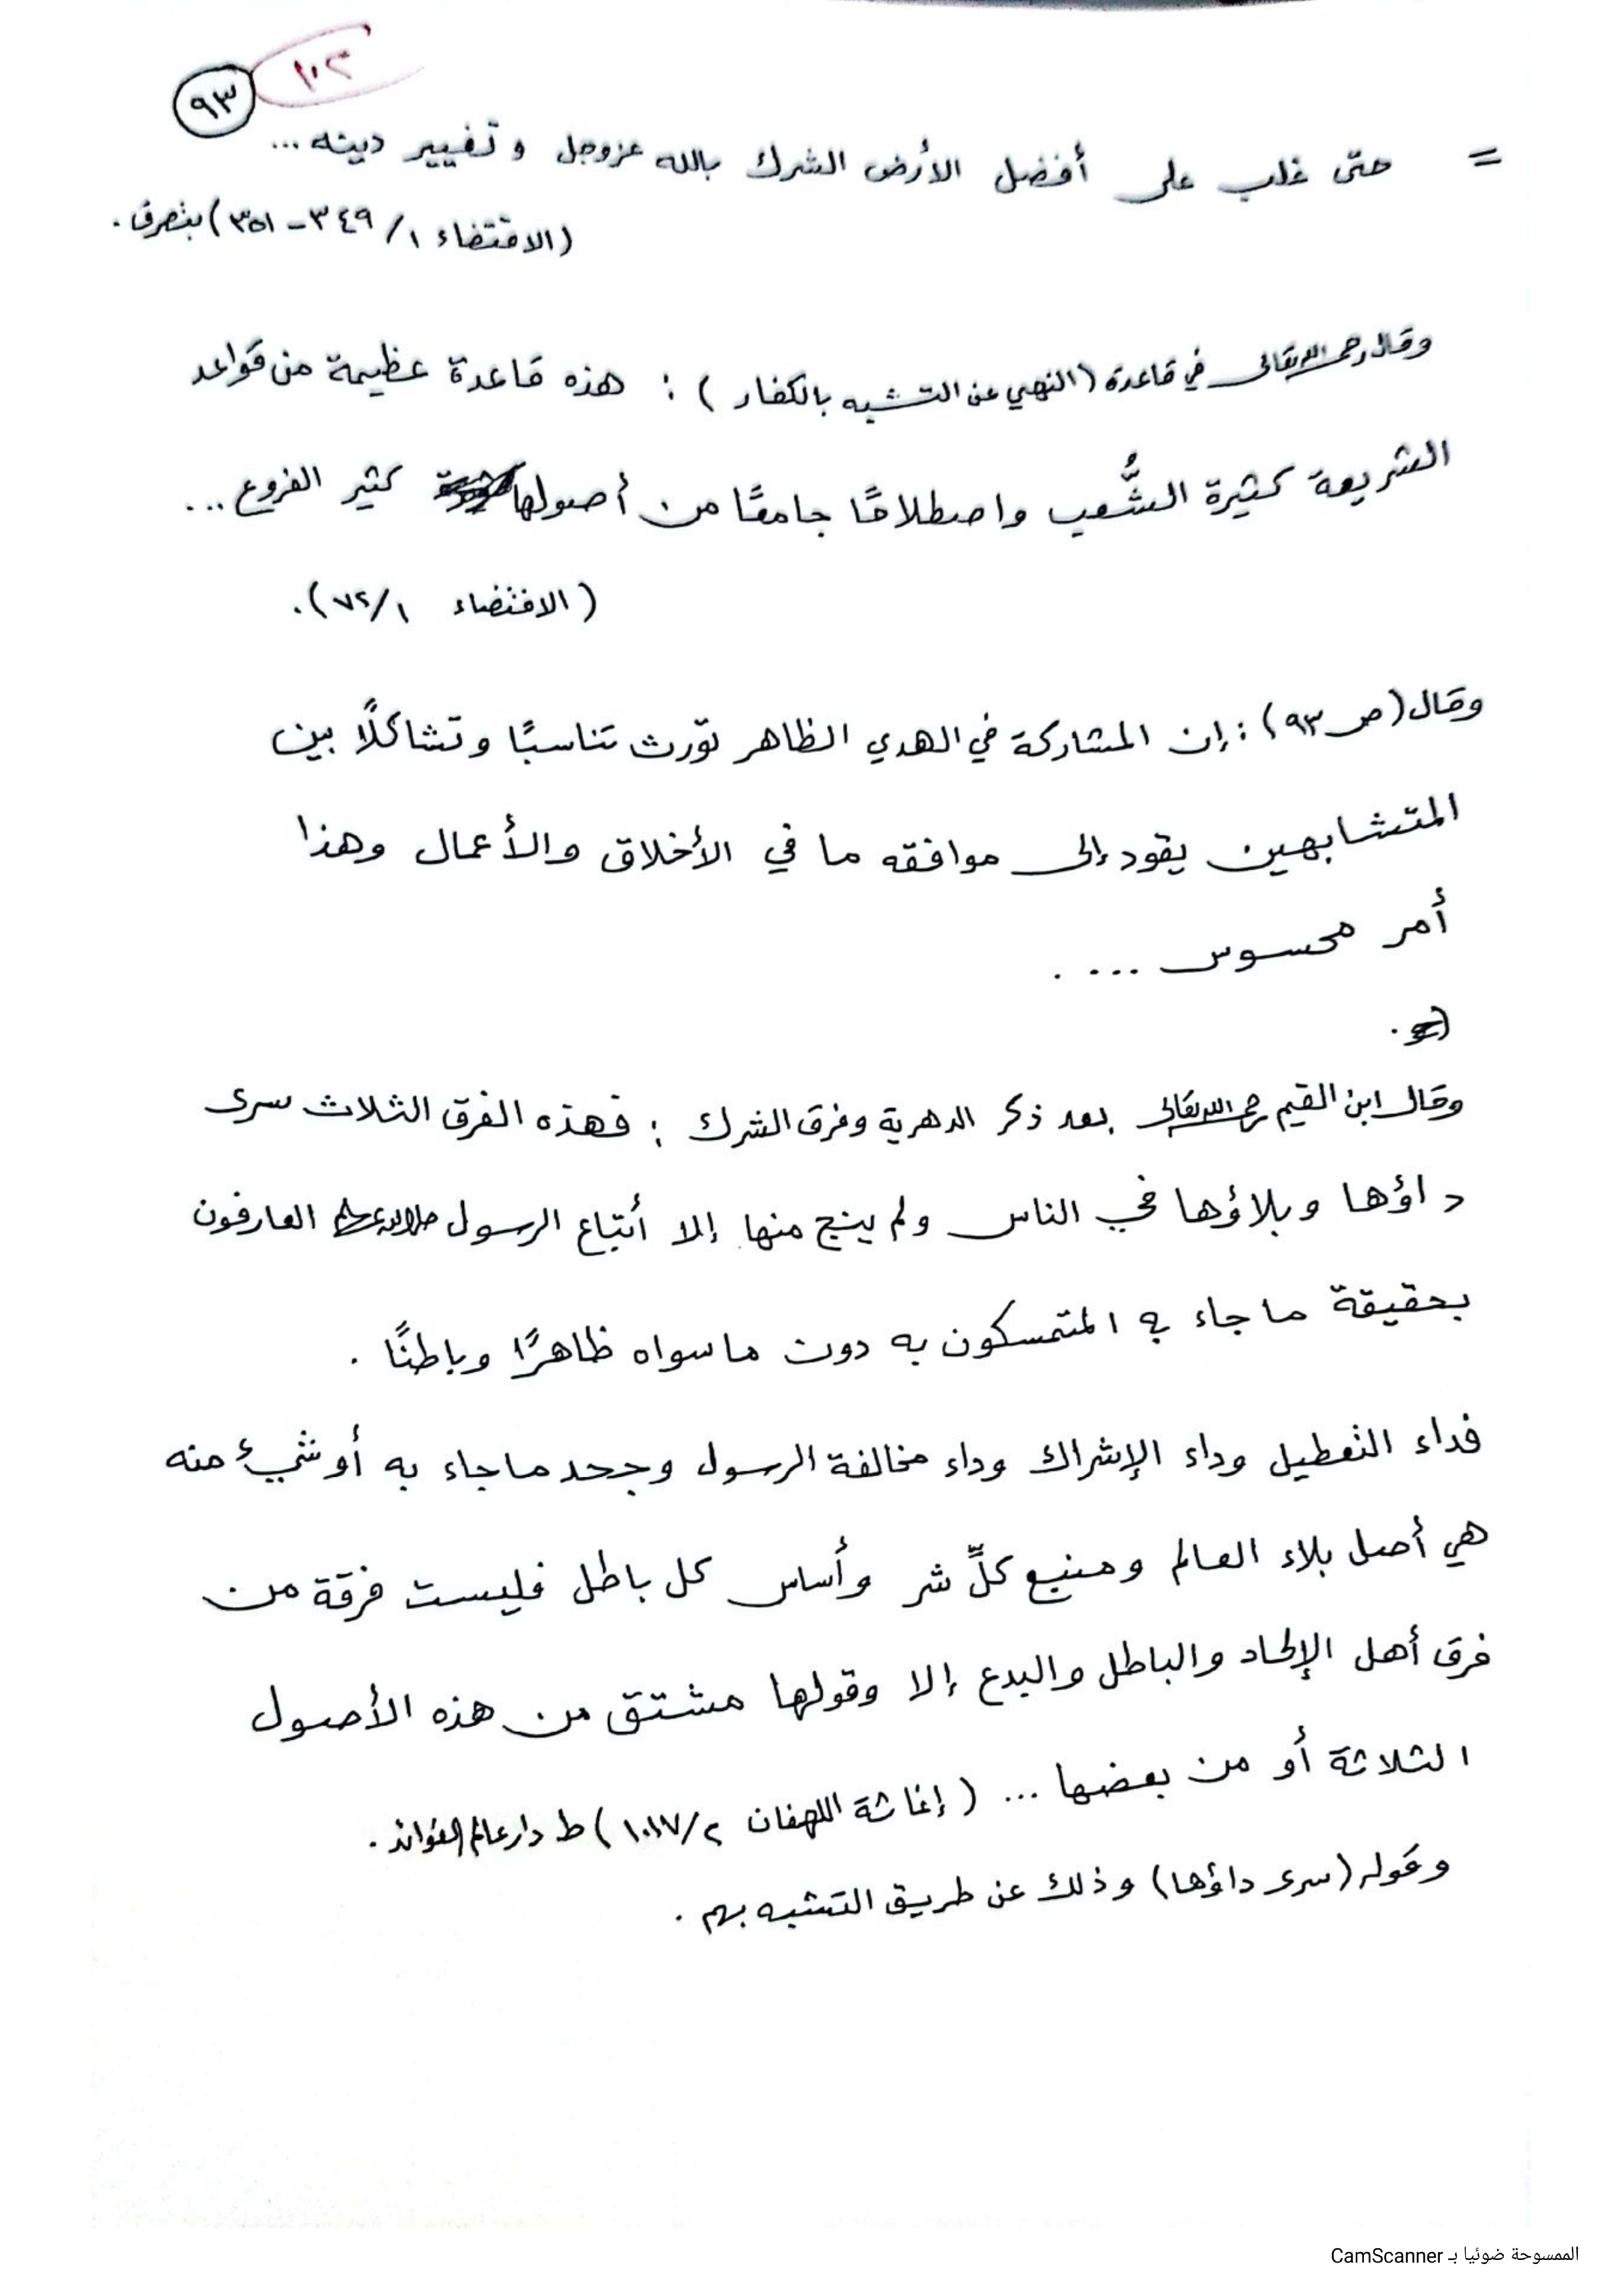 ١٠٢
٩٣
= حتّى غلب على أفضل الأرض الشرك بالله عزوجل وتغيير دينه ...
(الاقتضاء ١/ ٣٤٩ - ٣٥١) بتصرف .
وقال رحمه الله تعالى في قاعدة (النهي عن التشبه بالكفار) : هذه قاعدة عظيمة من قواعد
الشريعة كثيرة الشُّعب واصطلاحًا جامعًا من أصولها كثير الفروع ...
(الاقتضاء ١/ ٧٢) .
وقال (ص ٩٣) : إن المشاركة في الهدي الظاهر تورث تناسبًا وتشاكلًا بين
المتشابهين يقود إلى موافقه ما في الأخلاق والأعمال وهذا
أمر محسوس .... .
وقال ابن القيم رحمه الله تعالى بعد ذكر الدهرية وفرق الشرك : فهذه الفرق الثلاث سرى
داؤها وبلاؤها في الناس ولم ينج منها إلا أتباع الرسول صلى الله عليه وسلم العارفون
بحقيقة ما جاء به المتمسكون به دون ما سواه ظاهرًا وباطنًا .
فداء التعطيل وداء الإشراك وداء مخالفة الرسول وجحد ما جاء به أو شيء منه
هي أصل بلاء العالم ومنبع كلِّ شر وأساس كل باطل فليست فرقة من
فرق أهل الإلحاد والباطل والبدع إلا وقولها مشتق من هذه الأصول
الثلاثة أو من بعضها ... (إغاثة اللهفان ٢/ ١٠١٧) ط دار عالم الفوائد .
وقوله (سرى داؤها) وذلك عن طريق التشبه بهم .
الممسوحة ضوئيا بـ CamScanner